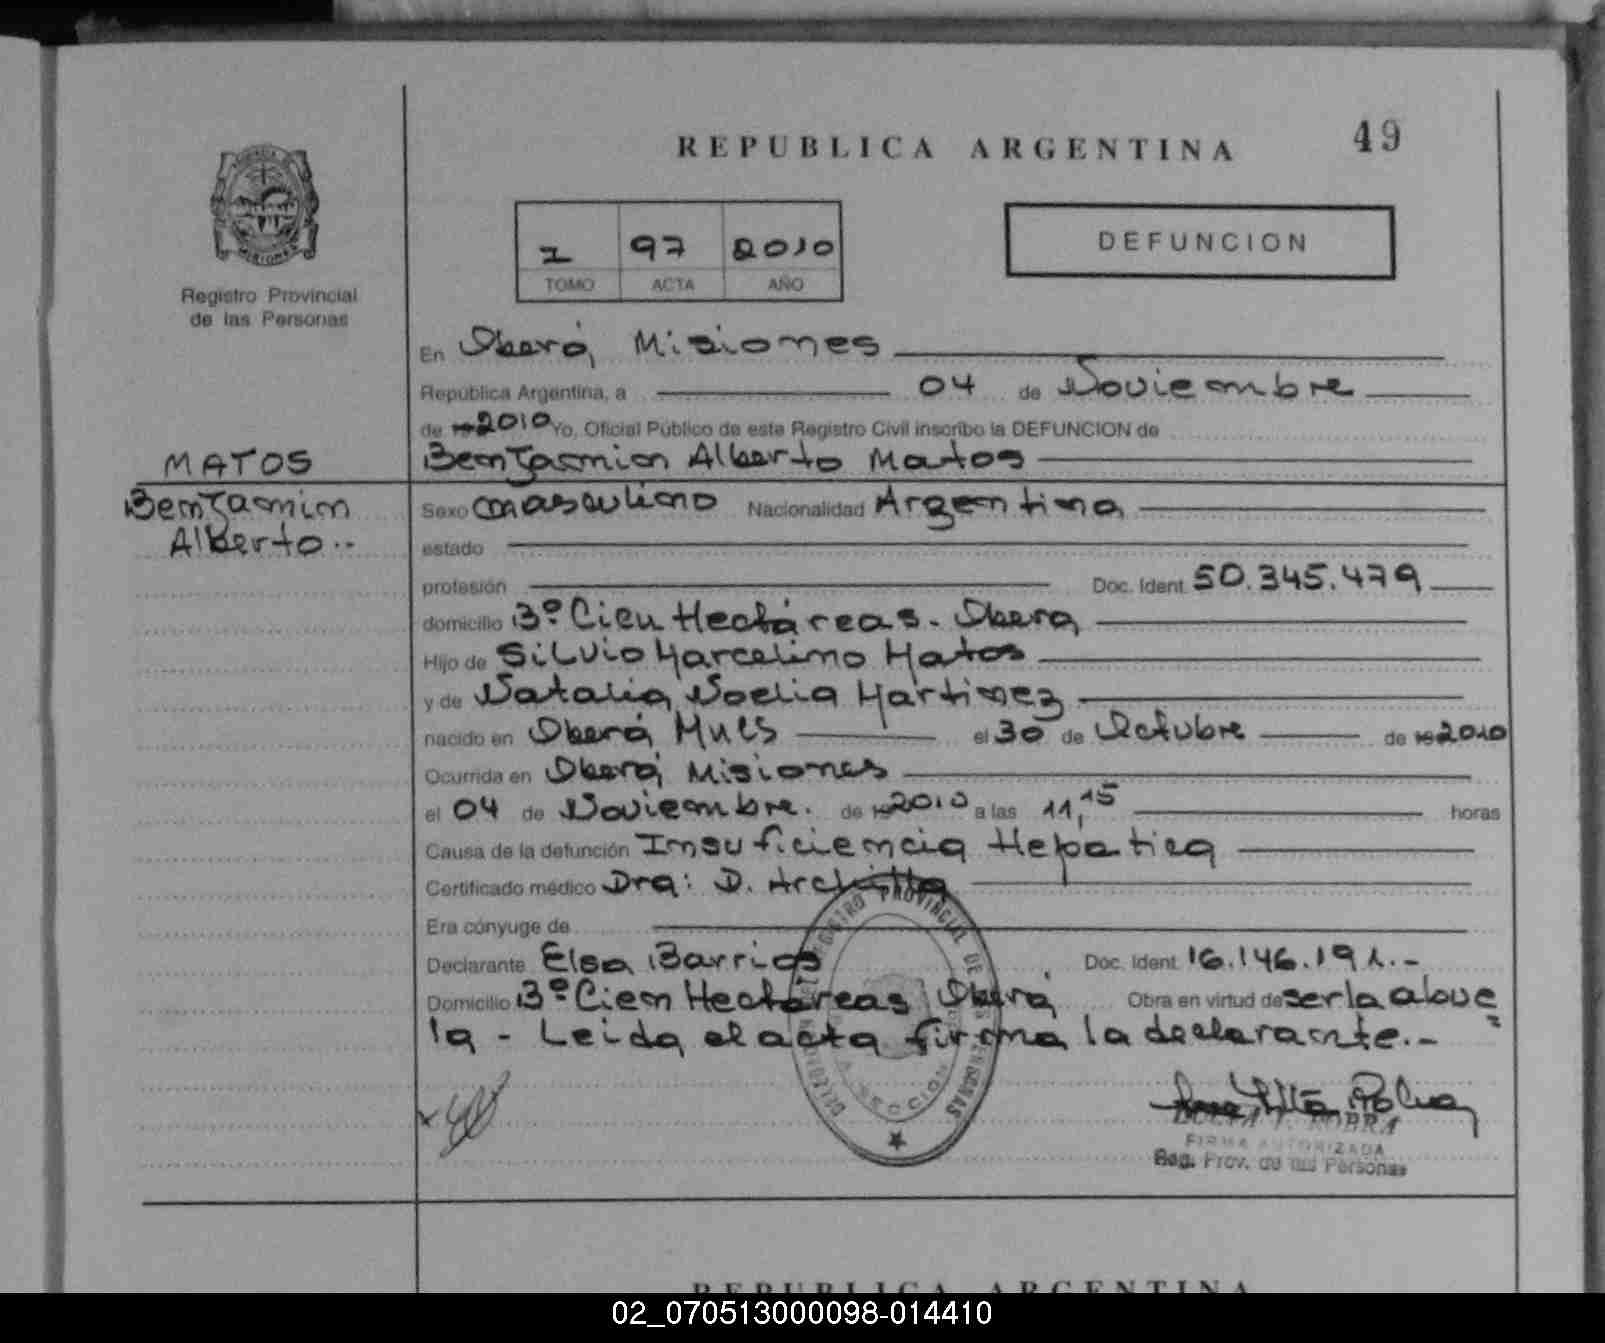 REPUBLICA ARGENTINA
49
I 97 2010
TOMO ACTA AÑO
DEFUNCION
Registro Provincial
de las Personas
En Oberá, Misiones
República Argentina, a 04 de Noviembre
de 19 2010 Yo, Oficial Público de este Registro Civil inscribo la DEFUNCION de
MATOS
Benjamin Alberto Matos
Benjamin
Alberto..
Sexo masculino Nacionalidad Argentina
estado
profesión Doc. Ident. 50.345.479
domicilio B° Cien Hectáreas. Oberá
Hijo de Silvio Marcelino Matos
y de Natalia Noelia Martinez
nacido en Oberá Mnes el 30 de Octubre de 19 2010
Ocurrida en Oberá, Misiones
el 04 de Noviembre. de 19 2010 a las 11,15 horas
Causa de la defunción Insuficiencia Hepatica
Certificado médico Dra: D.
Era cónyuge de
Declarante Elsa Barrios Doc. Ident. 16.146.191.-
Domicilio B° Cien Hectáreas Oberá Obra en virtud de ser la abue
la - Leida el acta firma la declarante.-
REGISTRO PROVINCIAL DE LAS PERSONAS
SECCION
FIRMA AUTORIZADA
Reg. Prov. de las Personas
REPUBLICA ARGENTINA
02_070513000098-014410